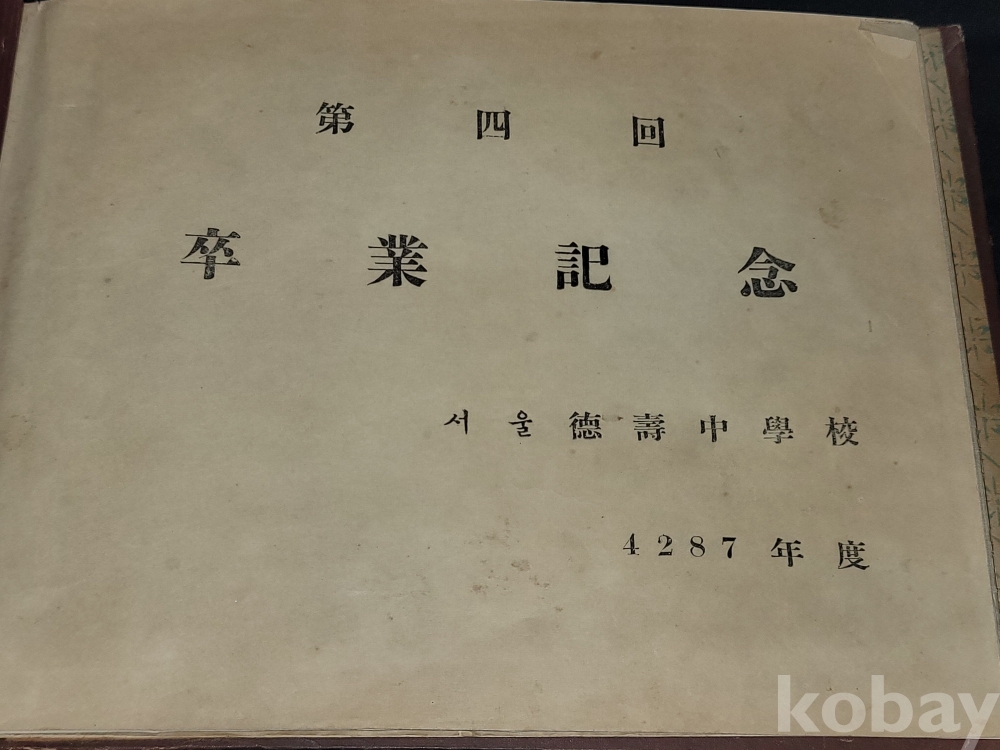 第四回
卒業記念
서울德壽中學校
4287年度
kobay